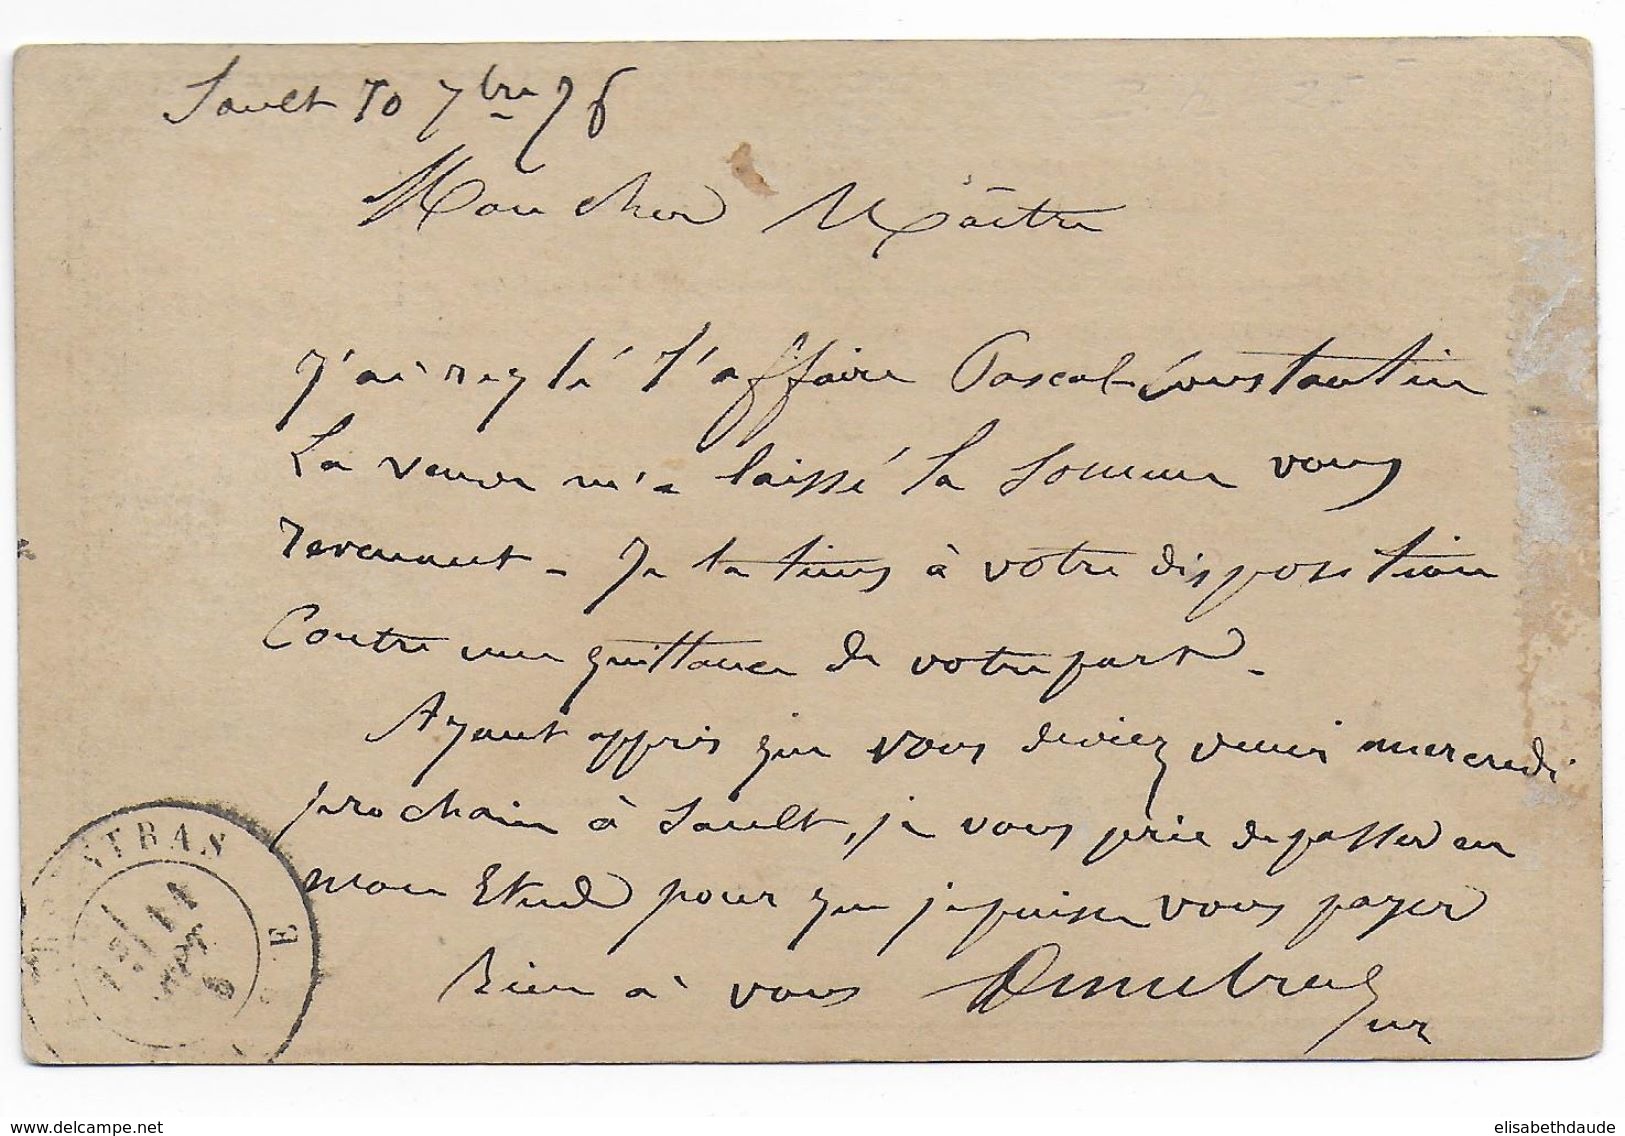 Sault 10 7bre 76
Mon cher Maître
J'ai reglé l'affaire Pascal-Constantin
La veuve m'a laissé la somme vous
revenant - Je la tiens à votre disposition
Contre une quittance de votre part -
Ayant appris que vous deviez venir mercredi
prochain à Sault, je vous prie de passer en
mon Etude pour que je puisse vous payer
Bien à vous
CARPENTRAS
11
SEPT
elisabethdaude
www.delcampe.net